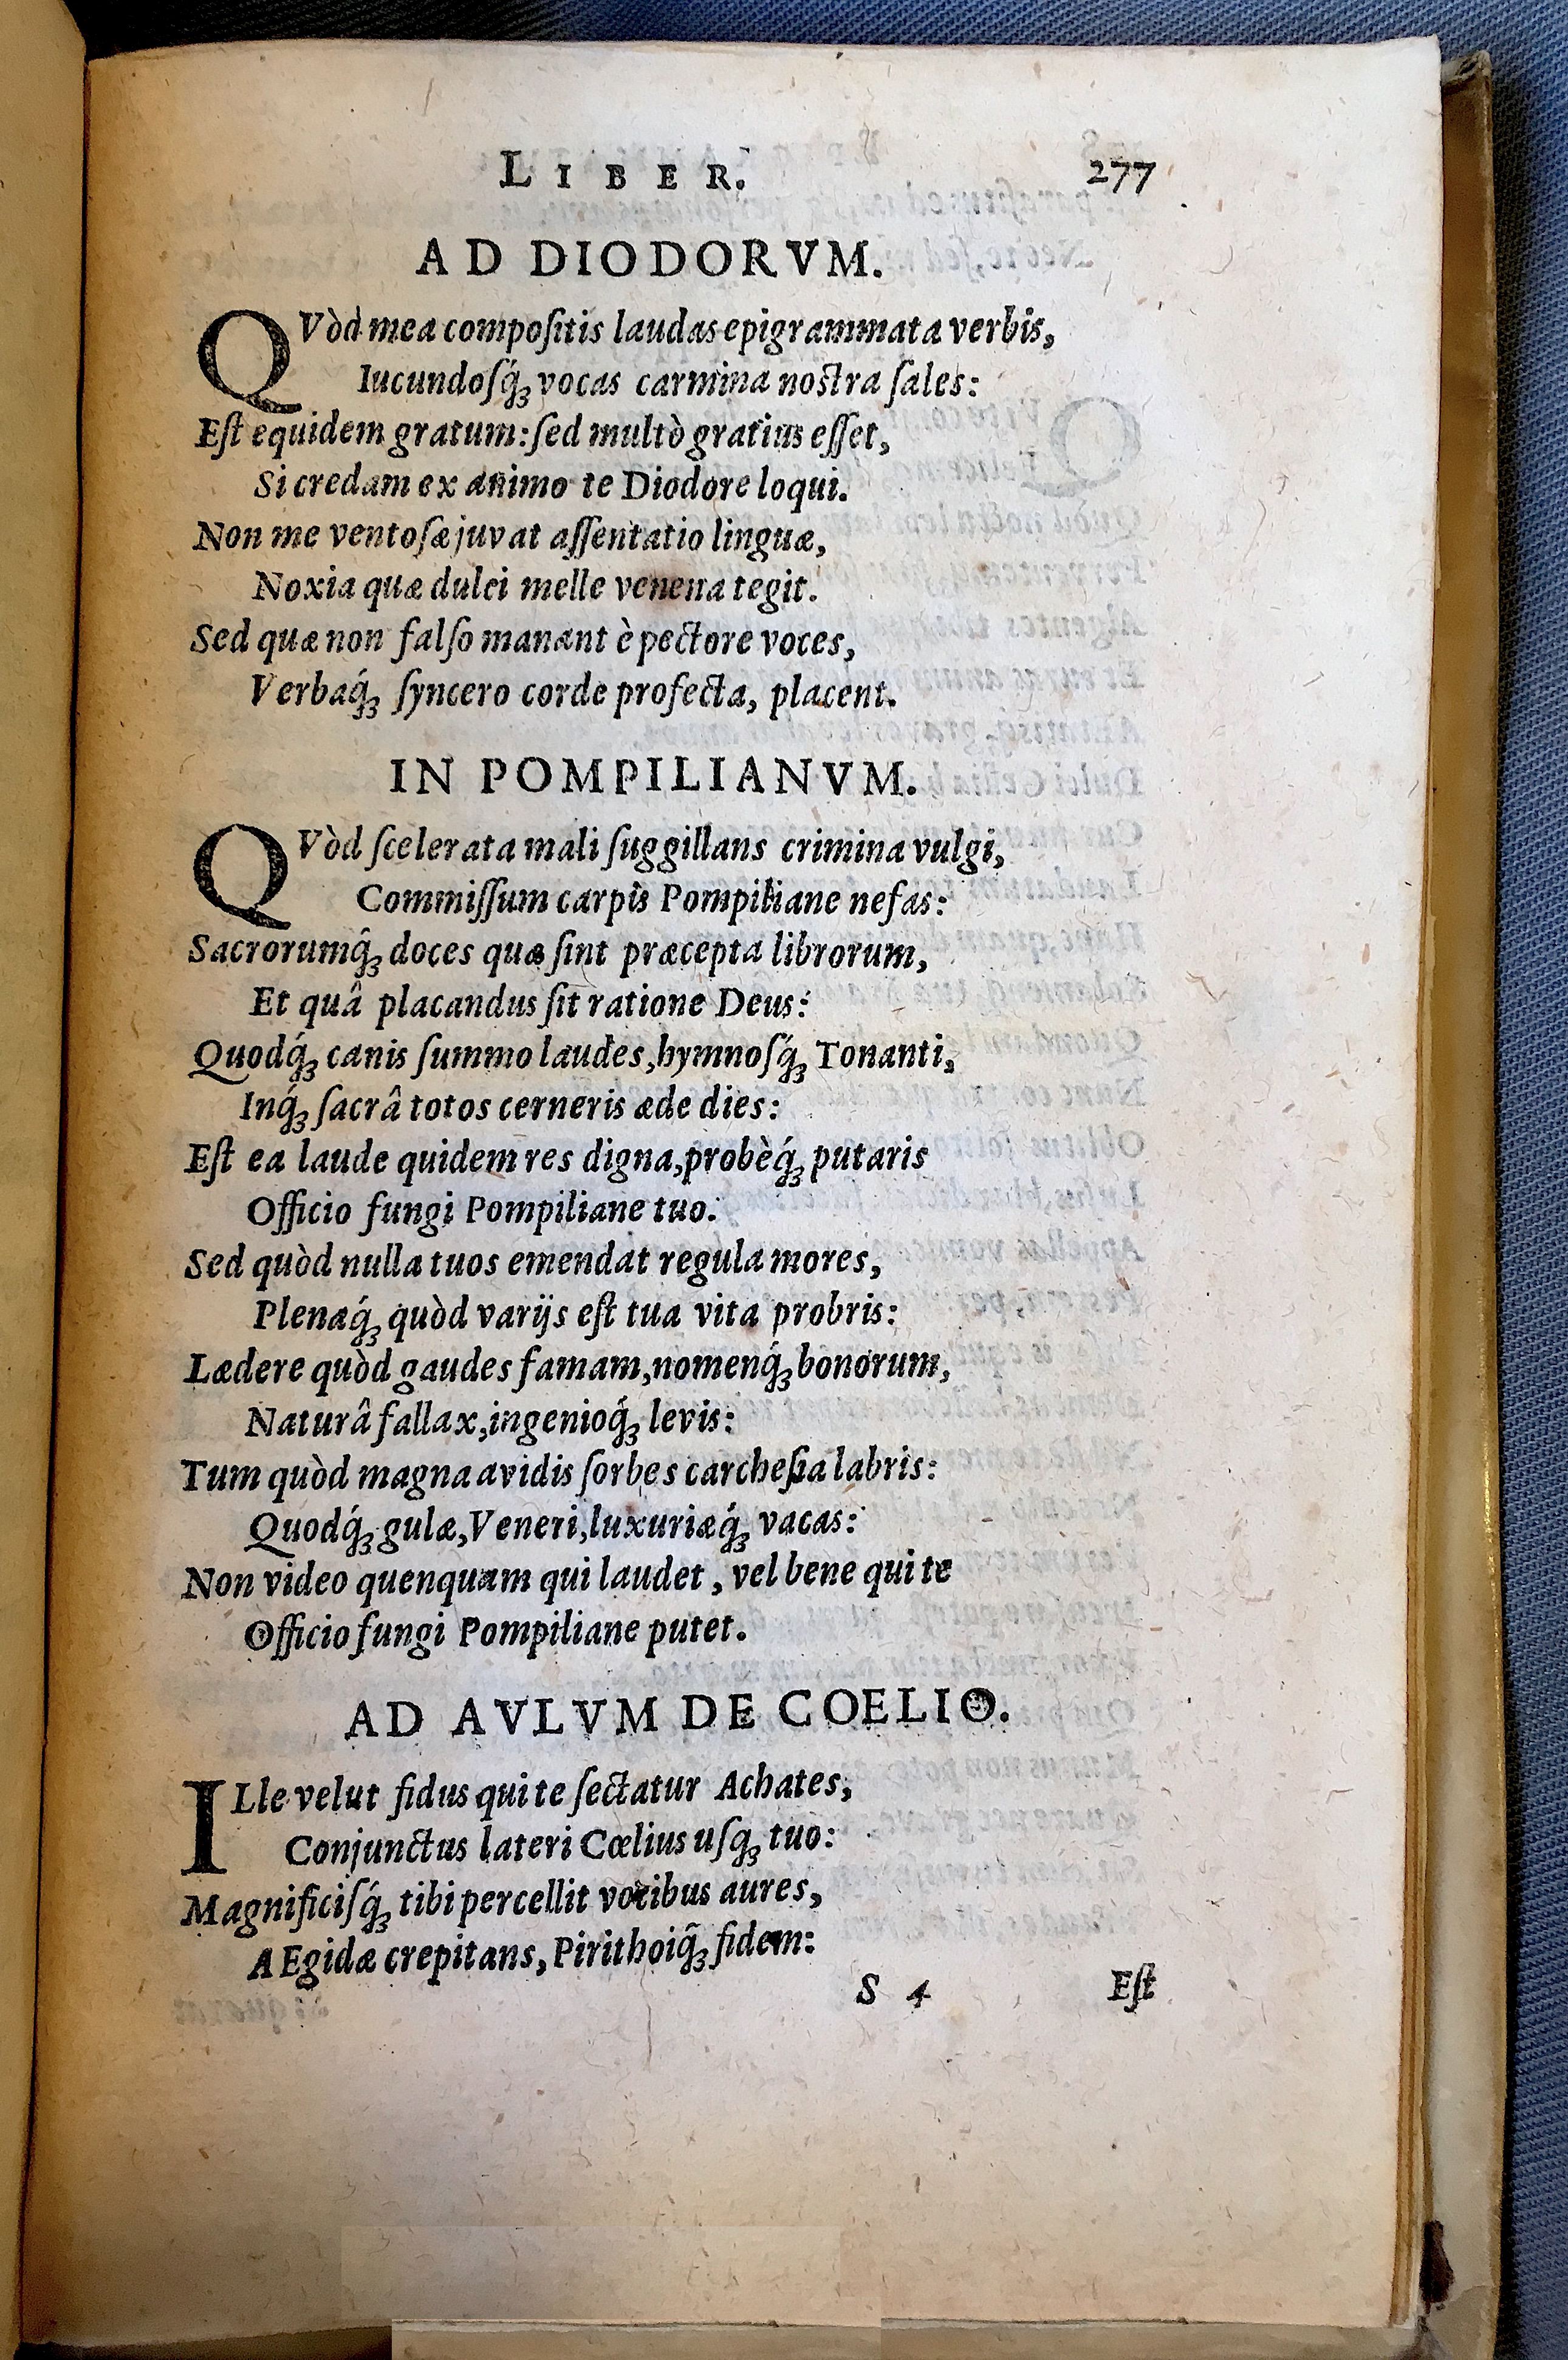 LIBER. 277
AD DIODORVM.
QVòd mea compoſitis laudas epigrammata verbis,
Iucundoſq́ꝫ vocas carmina noſtra ſales:
Eſt equidem gratum: ſed multò gratius eſſet,
Si credam ex animo te Diodore loqui.
Non me ventoſæ juvat aſſentatio linguæ,
Noxia quæ dulci melle venena tegit.
Sed quæ non falſo manant è pectore voces,
Verbaq́ꝫ ſyncero corde profecta, placent.
IN POMPILIANVM.
QVòd ſcelerata mali ſuggillans crimina vulgi,
Commiſſum carpis Pompiliane nefas:
Sacrorumq́ꝫ doces quæ ſint præcepta librorum,
Et quâ placandus ſit ratione Deus:
Quodq́ꝫ canis ſummo laudes, hymnoſq́ꝫ Tonanti,
Inq́ꝫ ſacrâ totos cerneris æde dies:
Eſt ea laude quidem res digna, probèq́ꝫ putaris
Officio fungi Pompiliane tuo.
Sed quòd nulla tuos emendat regula mores,
Plenaq́ꝫ quòd varijs eſt tua vita probris:
Lædere quòd gaudes famam, nomenq́ꝫ bonorum,
Naturâ fallax, ingenioq́ꝫ levis:
Tum quòd magna avidis ſorbes carcheſia labris:
Quodq́ꝫ gulæ, Veneri, luxuriæq́ꝫ vacas:
Non video quenquam qui laudet, vel bene qui te
Officio fungi Pompiliane putet.
AD AVLVM DE COELIO.
ILle velut fidus qui te ſectatur Achates,
Conjunctus lateri Cœlius uſq́ꝫ tuo:
Magnificiſq́ꝫ tibi percellit vocibus aures,
AEgidæ crepitans, Pirithoiq́ꝫ fidem:
S 4 Eſt